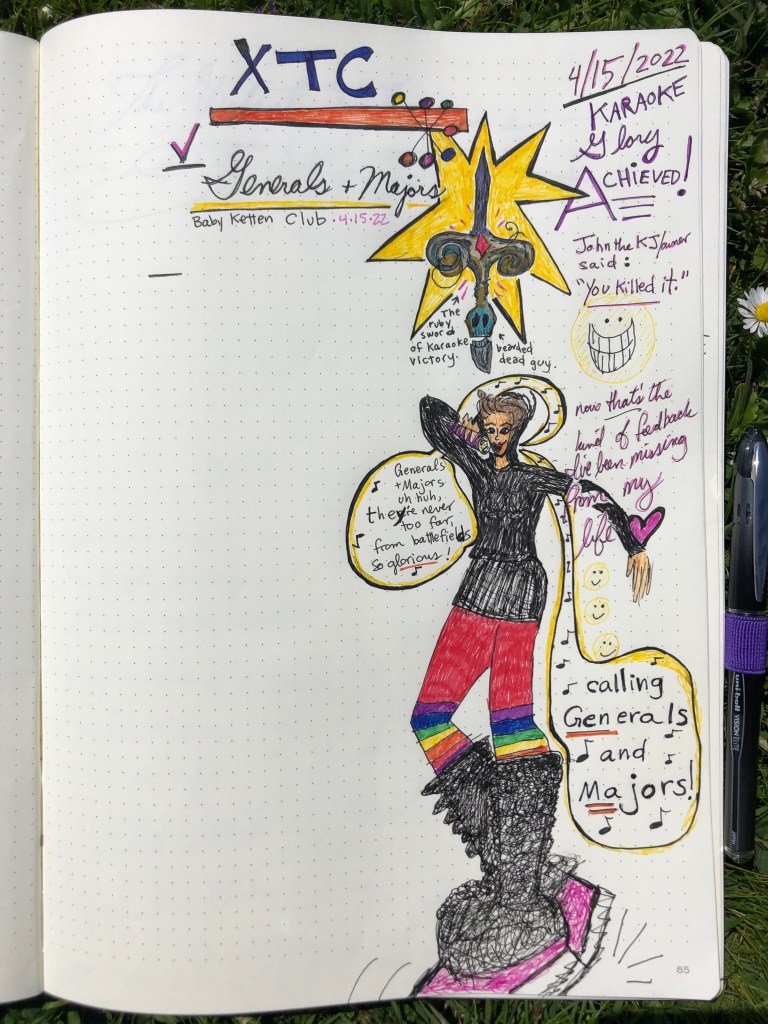 XTC
Generals + Majors
Baby Ketten Club · 4·15·22
4/15/2022
KARAOKE
Glory
ACHIEVED!
John the KJ/owner
said:
"You killed it."
The
ruby
sword
of Karaoke
victory.
bearded
dead guy.
now that's the
kind of feedback
I've been missing
from my
life
Generals
+Majors
uh huh,
they're never
too far
from battlefields
so glorious!
calling
Generals
and
Majors!
85
uni-ball VISION ELITE